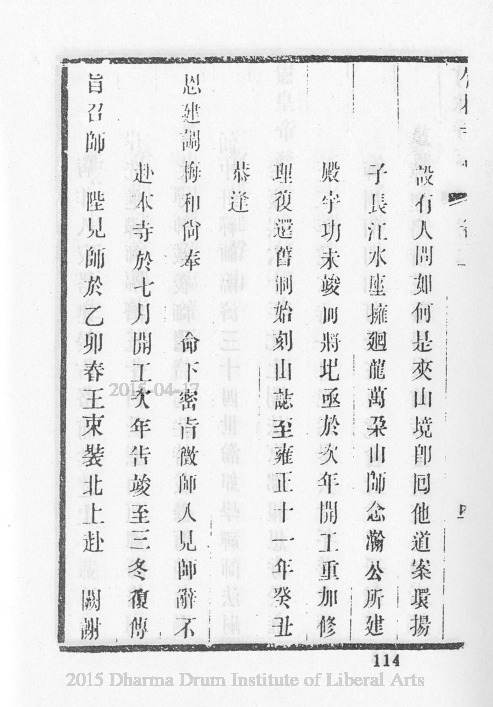 設有人問如何是夾山境卽回他道案環揚
子長江水座擁迴龍萬朶山師念瀚公所建
殿宇功未竣而將圮亟於次年開工重加修
理復還舊制始刻山誌至雍正十一年癸丑
恭逢
恩建調梅和尚奉 命下密旨徵師人見師辭不
赴本寺於七月開工次年告竣至三冬復傳
旨召師 陛見師於乙卯春王束裝北上赴 闕謝
四
114
2015-04-17
2015 Dharma Drum Institute of Liberal Arts